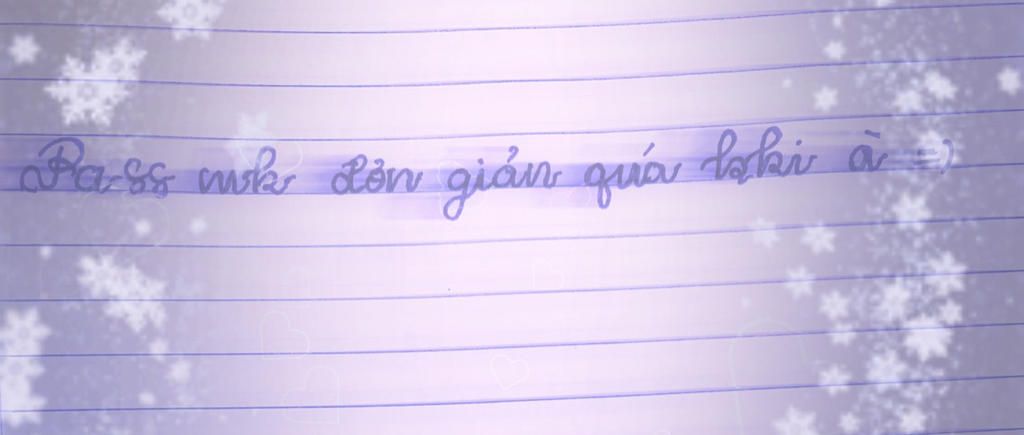 Pass mk đơn giản quá hki à =)